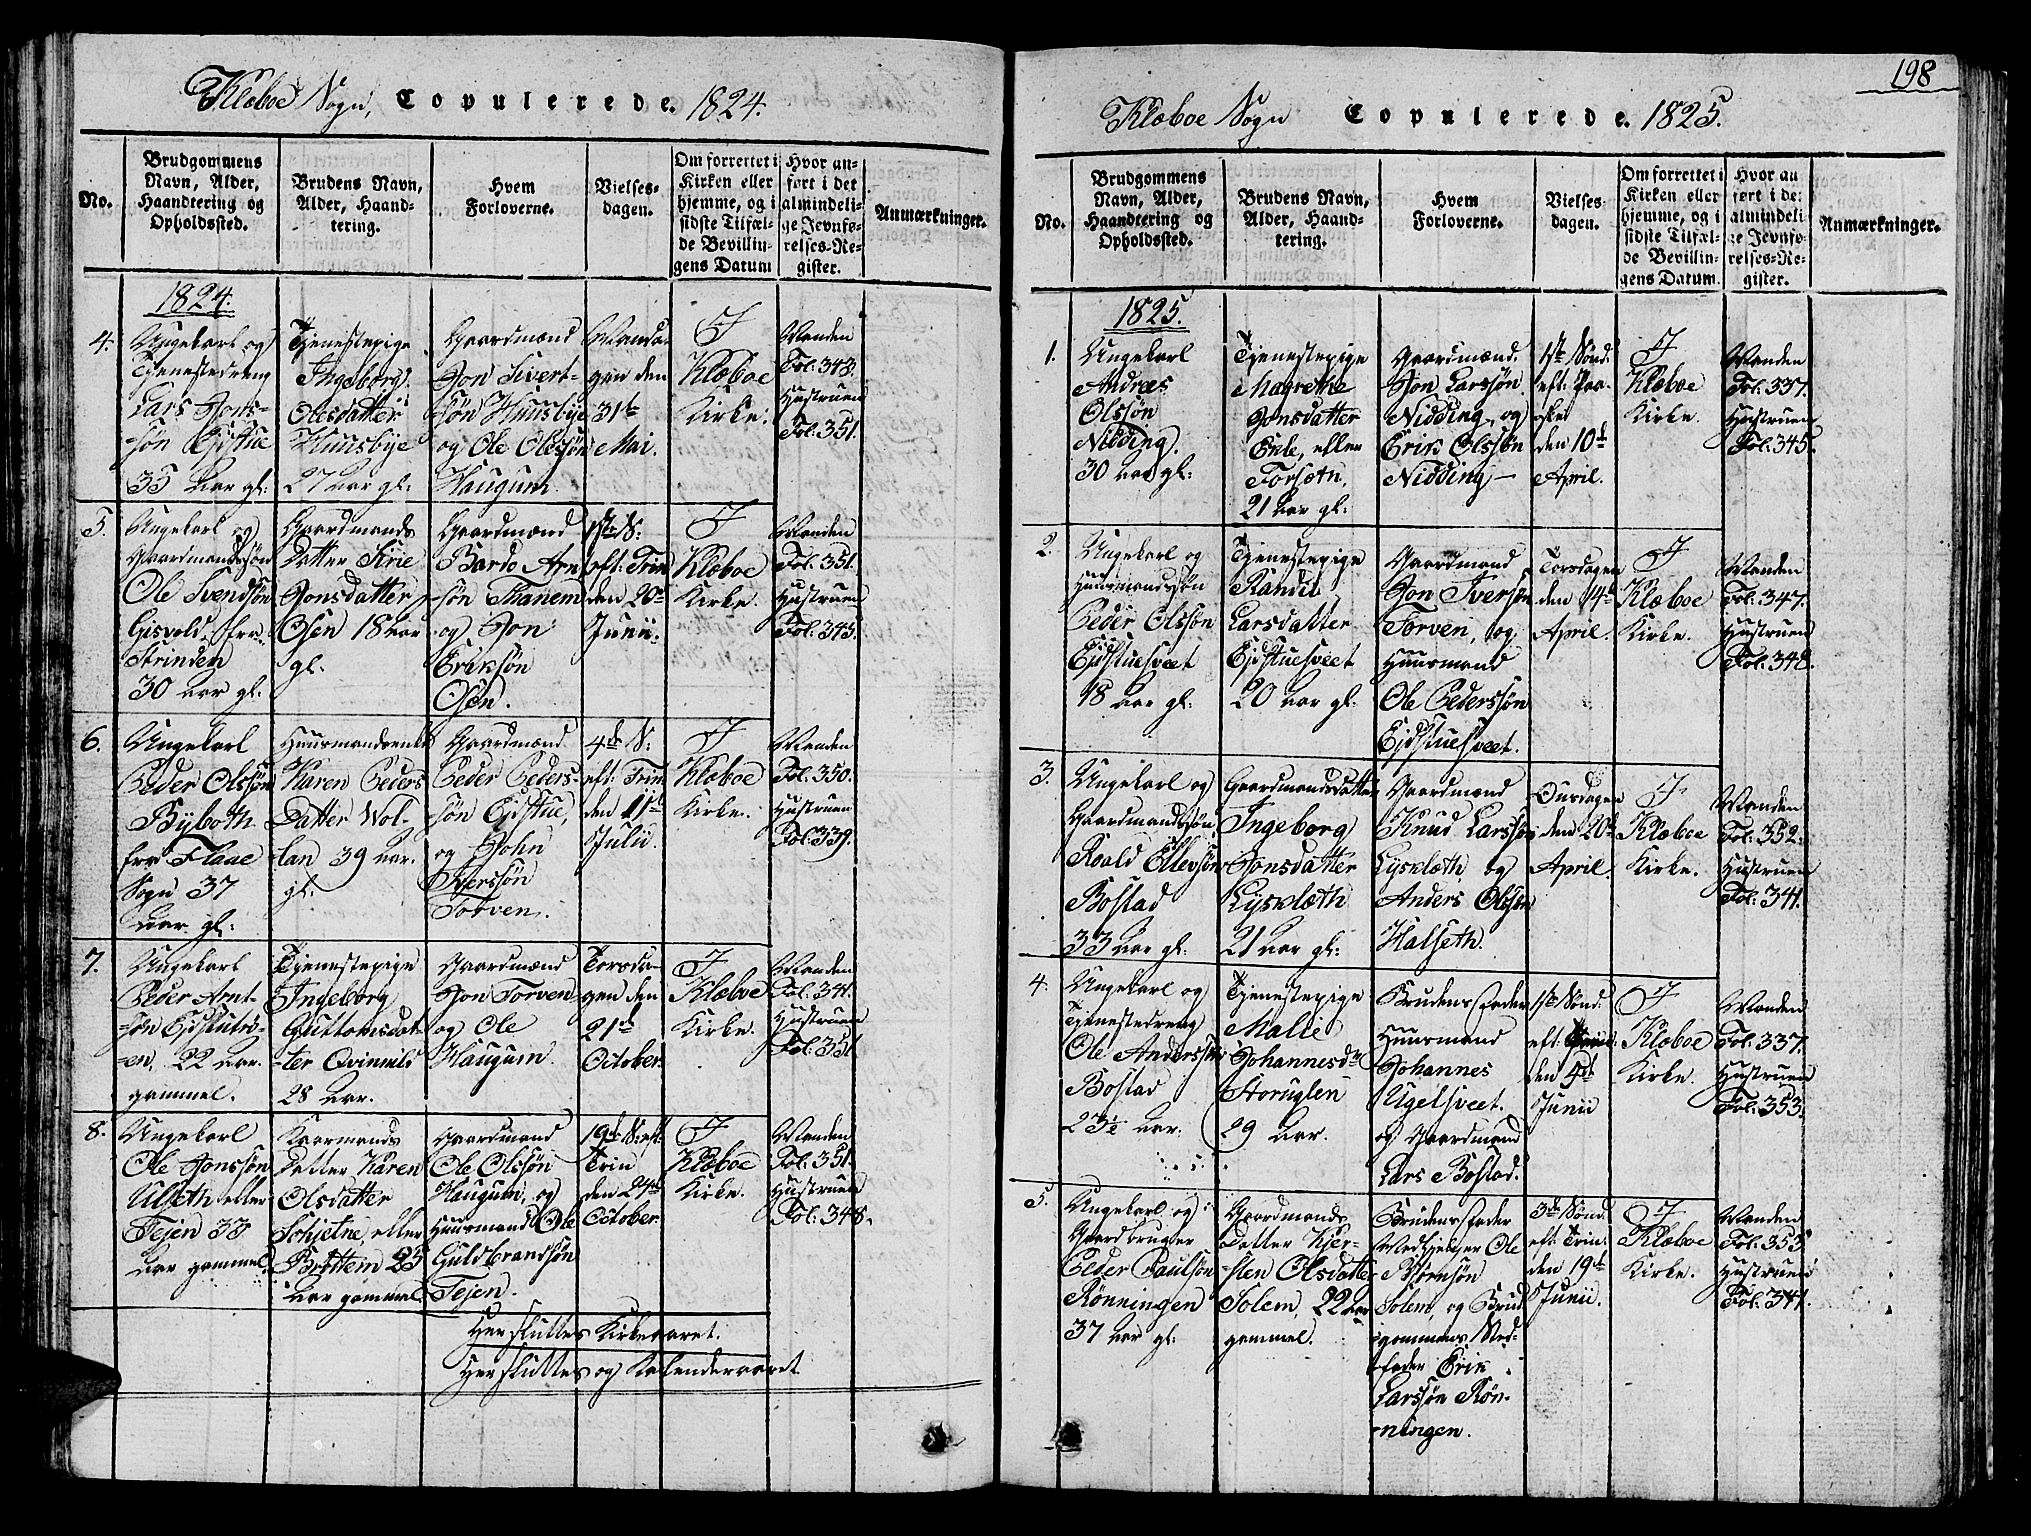 Klæboe Sogn, Copulerede. 1824.
No.
Brudgommens
Navn, Alder,
Haandtering og
Opholdssted.
Brudens Navn,
Alder, Haand-
tering.
Hvem
Forloverne.
Vielses-
dagen.
Om forrettet i
Kirken eller
hjemme, og i
sidste Tilfæl-
de Bevillin-
gens Datum
Hvor an-
ført i det
almindeli-
ge Jevnfø-
relses-Re-
gister.
Anmærkninger.
1824.
4.
Ungekarl og
Tjenestedreng
Lars Jons-
søn Ejdstue
35 Aar gl:
Tjenestepige
Ingeborg
Olesdatter
Huusbye
27 Aar gl:
Gaardmænd
Jon Sivert-
søn Huusbye
og Ole Olssøn
Haugum.
Manda-
gen den
31te
Mai.
I
Klæboe
Kirke.
Manden
Fol: 348.
Hustruen
Fol: 351.
5.
Ungekarl og
Gaardmandssøn
Ole Svendsøn
Gisvold, fra
Strinden
30 Aar gl.
Gaardmands
Datter Sirie
Jonsdatter
Osen 18 Aar
gl.
Gaardmænd
Bardo Arn
søn Thanem
og Jon
Eriksøn
Osen.
1ste S:
eft: Trin
den 20de
Junii.
I
Klæboe
Kirke.
Manden
Fol: 351.
Hustruen
Fol: 345.
6.
Ungekarl
Peder Olssøn
Bÿboth
fra Flaae
Sogn 37
Aar gl:
Huusmandsenke
Karen Peders
Datter Wol-
lan 39 Aar.
gl.
Gaardmænd
Peder Peders-
søn Ejdstue,
og John
Iverssøn
Torven.
4de S:
eft: Trin.
den 11te
Julii.
I
Klæboe
Kirke.
Manden
Fol: 350.
Hustruen
Fol: 339.
7.
Ungekarl
Peder Arnt-
søn Ejdstuerø-
en, 22 Aar.
gammel.
Tjenestepige
Ingeborg
Guttormsdat-
ter Qvinnels
28 Aar.
Gaardmænd
Jon Torven
og Ole
Haugum.
Torsda-
gen den
21de
October.
I
Klæboe
Kirke.
Manden
Fol: 341.
Hustruen
Fol: 351
8.
Ungekarl
Ole Jonssøn
Ulseth eller
Tejen 33
Aar gammel
Kaarmands
Datter Karen
Olsdatter
Sohjetne, eller
Bröttem 25
Aar gammel
Gaardmand
Ole Olssøn
Haugum, og
Huusmand Ole
Guldbrandsøn
Tejen.
19de S: eft:
Trin
den 24de
October.
I
Klæboe
Kirke.
Manden
Fol: 351.
Hustruen
Fol: 348.
Her sluttes Kirkeaaret.
Her sluttes og Kalenderaaret
198
Klæboe Sogn Copulerede. 1825.
No.
Brudgommens
Navn, Alder,
Haandtering og
Opholdssted.
Brudens Navn,
Alder, Haand-
tering.
Hvem
Forloverne.
Vielses
dagen.
Om forrettet i
Kirken eller
hjemme, og i
sidste Tilfæl-
de Bevillin-
gens Datum.
Hvor an
ført i de:
almindeli
ge Jevnfø-
relses-Re-
gister.
Anmærkninger.
1825.
1.
Ungekarl
Andreas
Olssøn
Nidding.
30 Aar gl:
Tjenestepige
Magrethe
Jonsdatter
Enle, eller
Forseth,
21 Aar gl:
Gaardmænd.
Jon Larssøn
Nidding, og
Erik Olssøn
Nidding
1ste Sønd.
eft: Paa-
oske
den 10de
April.
I
Klæboe
Kirke.
Manden
Fol: 337.
Hustruen
Fol: 345.
2.
Ungekarl og
Huusmandssøn
Peder Olssøn
Ejdstuesveet
18 Aar gl:
Tjenestepige
Randi
Larsdatter
Ejdstuesveet
20 Aar gl.
Gaardmand
Jon Iversøn
Torven, og
Huusmand
Ole Pederssøn
Ejdstuesveet.
Torsdagen
den 14de
April.
I
Klæboe
Kirke.
Manden
Fol: 347.
Hustruen
Fol: 348.
3.
Ungekarl og
Gaardmandssøn
Roald Ellevsøn
Bostad
33 Aar gl:
Gaardmandsdatter
Ingeborg
Jonsdatter
Lysklæth
21 Aar gl:
Gaardmænd
Knud Larssøn
Lysklæth og
Anders Olssøn
Halseth.
Onsdagen
den 20de
April.
I
Klæboe
Kirke.
Manden
Fol: 352.
Hustruen
Fol: 341.
4.
Ungekarl og
Tjenestedreng
Ole Anderssøn
Bostad
23½ Aar.
Tjenestepige
Malie
Johannesdr
Storuglen
29 Aar.
Brudens Fader
Huusmand
Johannes
Ugelsveet.
og Gaardmand
Lars Bostad.
1ste Sønd.
eft Trin:
den 5de
Junii
I
Klæboe
Kirke.
Manden
Fol: 337.
Hustruen
Fol: 353.
5.
Ungekarl og
Gaardbruger
Peder Paulsøn
Rönningen
37 Aar gl:
Gaardmands
Datter Kjer-
sten Olsdatter
Solem, 22 Aar
gammel.
Brudens Fader
Medhjelper Ole
Biörnsøn
Solem, og Brud
gommens Sted-
fader Erik
Larssøn Rön-
ningen.
3de Sønd.
eft: Trin:
den 19de
Junii.
I
Klæboe
Kirke.
Manden
Fol: 353
Hustruen
Fol: 341.